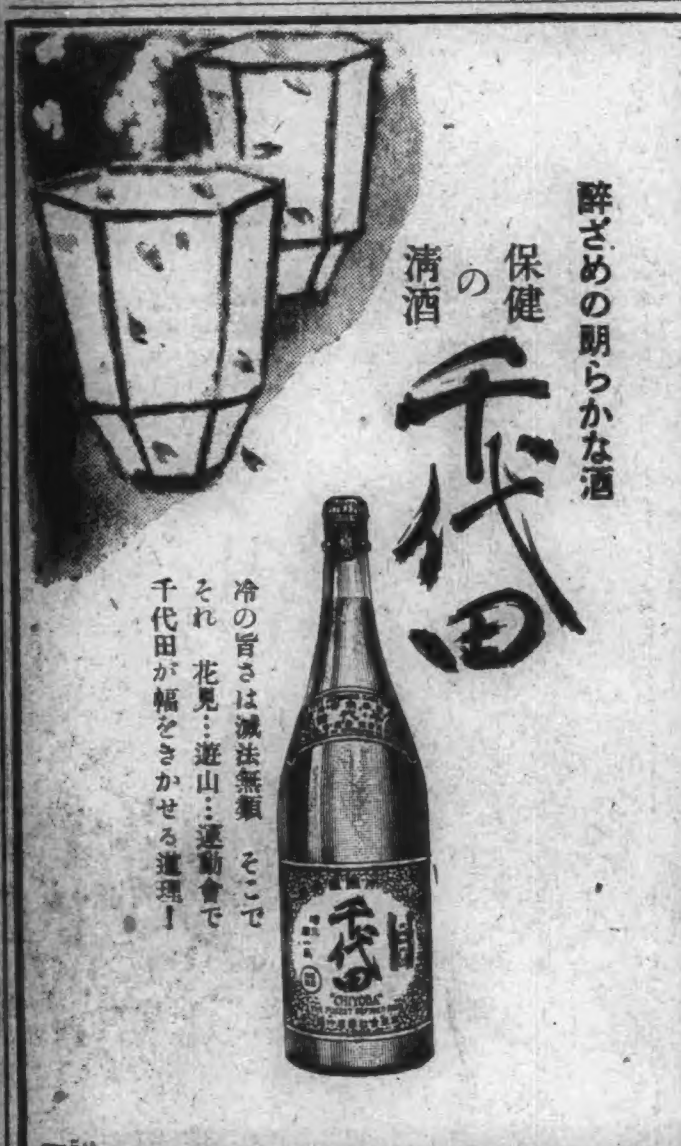 醉ざめの朗らかな酒
保健
の
清酒
千代田
冷の旨さは滅法無類　そこで
それ　花見…遊山…運動會で
千代田が幅をきかせる道理！
千代田
"CHIYODA"